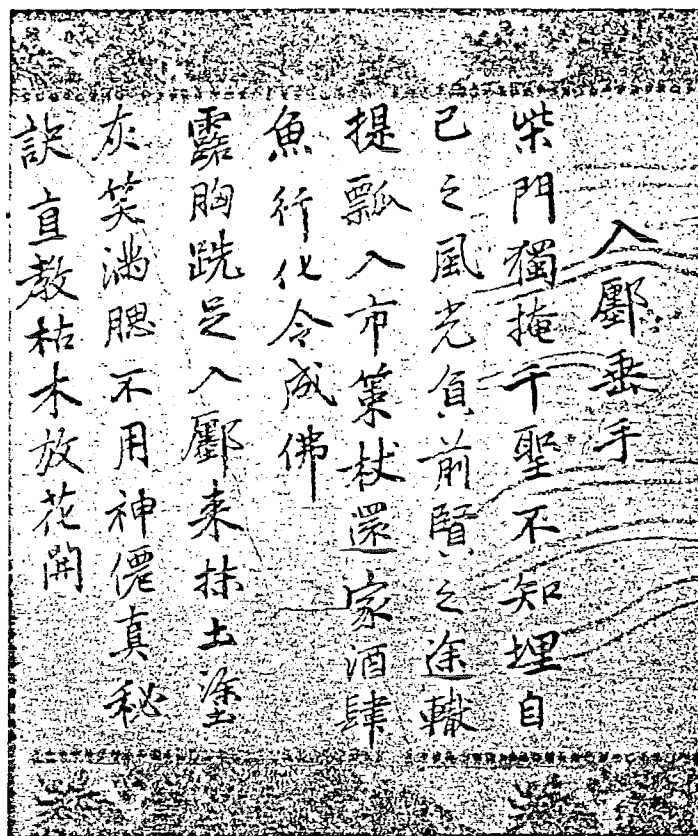 入鄽垂手
柴門獨掩千聖不知埋自
己之風光負前賢之途轍
提瓢入市策杖還家酒肆
魚行化令成佛
露胸跣足入鄽来抹土塗
灰笑滿腮不用神僊真秘
訣直教枯木放花開